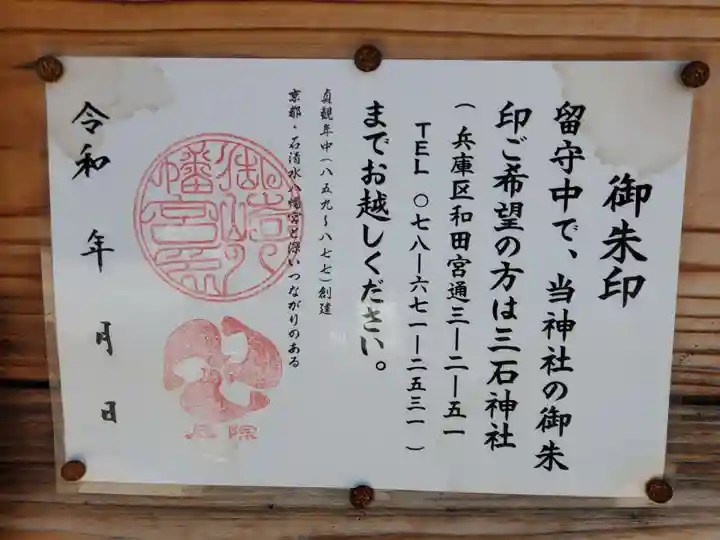 御朱印
留守中で、当神社の御朱
印ご希望の方は三石神社
(兵庫区和田宮通三ー二ー五一
TEL 〇七八ー六七一ー二五三一)
までお越しください。
貞観年中(八五九〜八七七)創建
京都・石清水八幡宮と深いつながりのある
令和 年 月 日